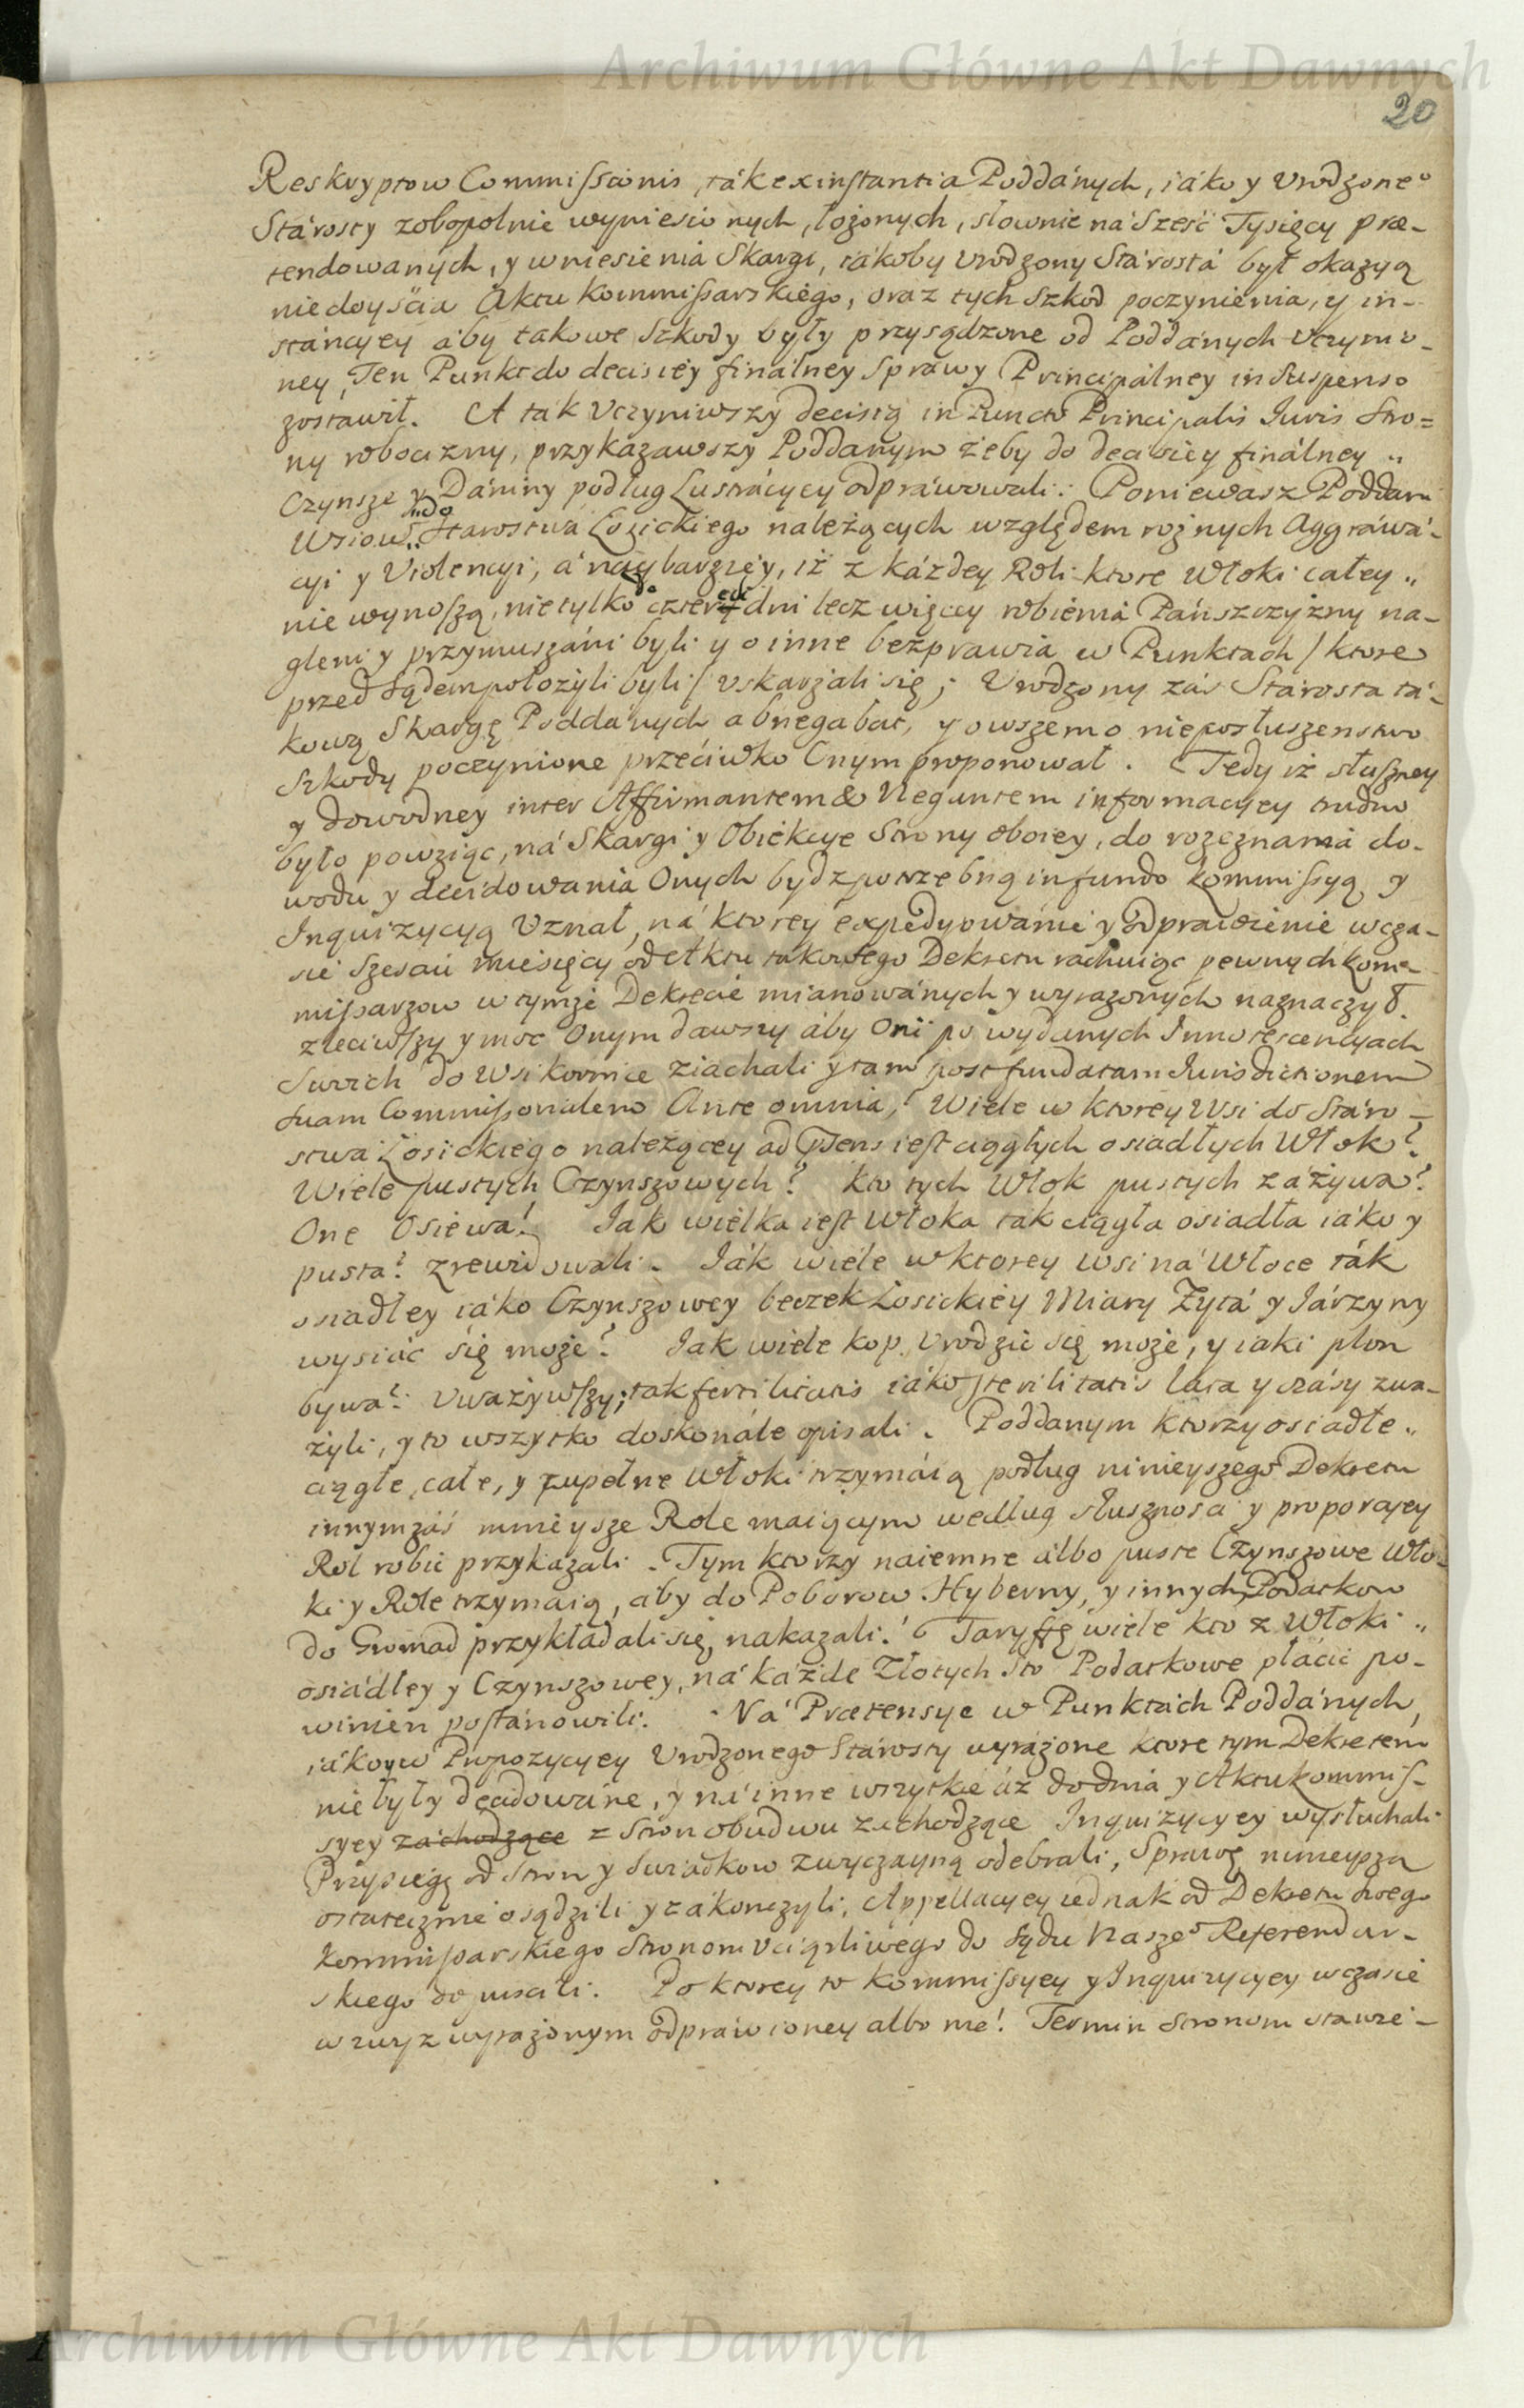 Archiwum Główne Akt Dawnych
20
Reskryptow Commissionis, ták ex instantia Poddánych, iáko y Vrodzone°
Stárosty zobopolnie wyniesionych, łożonych, słownie ná Sześć Tysięcy præ-
tendowanych, y wniesienia Skargi, iákoby Vrodzony Stárostá był okazyą
niedoyścia Aktu Kommissarskiego, oraz tych Szkod poczynienia, y in-
stáncyey áby takowe Szkody były przysądzone od Poddánych Vczynio-
ney, Ten Punkt do decisiey finálney Spráwy Principálney in Suspenso
zostawił. A ták Vczyniwszy decisią in Puncto Principalis Iuris Stro=
ny robocizny, przykazawszy Poddanym żeby do decisiey finálney „
Czynsze y Dániny podług Lustrácyey odpráwowali: Poniewasz Poddani
Wsiow do Starostwa Łosickiego należących względem rożnych Aggráwá-
cyi y Violencyi, á naybarziey, iż z káżdey Roli ktore Włoki całey „
nie wynoszą, nie tylko do czterech dni lecz więcey robienia Páńszczyżny na-
gleni y przymuszáni byli y o inne bezprawia w Punktach / ktore
przed Sądem położyli byli / vskarżali się; Vrodzony záś Stárosta tá-
kową Skargę Poddánych abnegabat, y owszem o nieposłuszenstwo
Szkody poczynione przeciwko Onym proponował. Tedy iż słuszney
y dowodney inter Affirmantem & Negantem informacyey trudno
było powziąc, ná Skargi y Obiekcye Strony oboiey, do rozeznania do-
wodu y decidowania Onych bydz potrzebną in fundo Kommissyą y
Inquizycyą Vznał, ná ktorey expedyowánie y odprawienie w cza-
sie Szesciu miesięcy od Aktu takowego Dekretu rachuiąc pewnych Kom-
missarzow w tymże Dekrecie mianowánych y wyrażonych naznaczył.
zleciwszy y moc Onym dawszy áby Oni po wydanych Innotescencyach
Swoich do Wsi Kornice ziachali y tam post fundatam Iurisdictionem
suam Commissorialem Ante omnia, Wiele w ktorey Wsi do Stáro-
stwa Łosickiego należącey ad præsens iest ciągłych osiadłych Włok?
Wiele pustych Czynszowych? Kto tych Włok pustych záżywa?
One Osiewa? Jak wielka iest Włoka ták ciągła osiadła iáko y
pusta? zrewidowali. Iák wiele w ktorey wsi ná Włoce ták
osiadłey iáko Czynszowey beczek Łosickiey Miary Żytá y Iárzyny
wysiác się może? Jak wiele kop Vrodzic się może, y iaki plon
bywa? Vważywszy; tak fertilitatis iáko sterilitatis lata y czásy zwa-
żyli, y to wszytko doskonále opisali. Poddanym ktorzy osiadłe „
ciągłe, całe, y zupełne Włoki trzymáią podług ninieyszego Dekretu
innym záś mnieysze Role maiącym według słusznosci y proporcyey
Rol robic przykazali. Tym ktorzy naiemne álbo puste Czynszowe Wło-
ki y Role trzymaią, aby do Poborow Hyberny, y innych Podatkow
do Gromad przykładali się, nakazali. Taryffę wiele kto z Włoki „
osiádłey y Czynszowey, ná każde Złotych Sto Podatkowe płácic po-
winien postánowili. Ná Prætensye w Punktách Poddánych,
iáko y w Propozycyey Vrodzonego Stárosty wyráżone ktore tym Dekretem
nie były decidowáne, y ná inne wszytkie áż do dnia y Aktu Kommis-
syey zachodzące z Stron obudwu zachodzące Inquizycyey wysłuchali
Przysięgę od Stron y Swiadkow zwyczayną odebrali, Sprawę ninieyszą
ostatecznie osądzili y zákonczyli; Appellacyey iednak od Dekretu swego
Kommissarskiego Stronom Vciążliwego do Sądu Nasze° Referendar-
skiego dopuscili. Po ktorey to Kommissyey y Inquizycyey w czasie
wzwyz wyrażonym odprawioney albo nie! Termin Stronom stawie-
Archiwum Główne Akt Dawnych